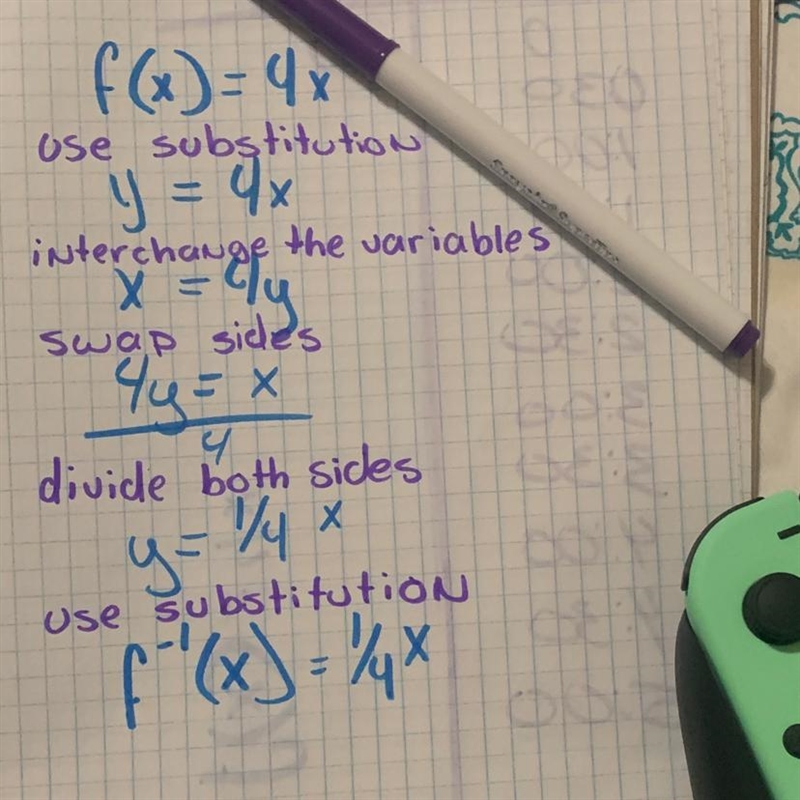 f(x) = 4x
use substitution
y = 4x
interchange the variables
x = 4y
swap sides
4y = x
4
divide both sides
y = 1/4 x
use substitution
f⁻¹(x) = 1/4 x